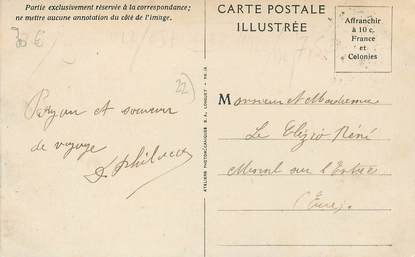 Partie exclusivement réservée à la correspondance;
ne mettre aucune annotation du côté de l'image.
30 €
22)
et souvenir
de voyage
ATELIERS PHOTOMÉCANIQUES D. A. LONGUET
CARTE POSTALE
ILLUSTRÉE
Affranchir
à 10 c.
France
et
Colonies
Monsieur et Madame
Le Clézio René
sur l'
(Eure).